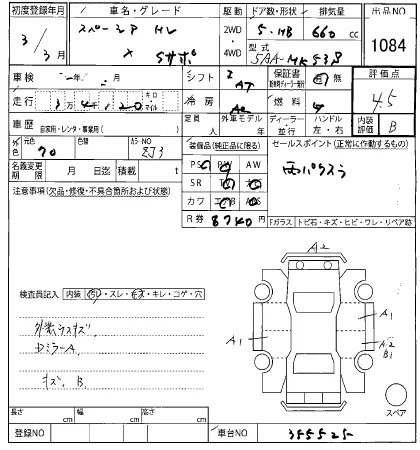 初度登録年月 車名・グレード 駆動 ドア数・形状 排気量 出品NO
3/3月 2WD 4WD 5・HB 660cc
型式 5AA-MK53S
1084
車検 年 月 シフト AT 保証書 有 無 評価点
走行 キロ マイル 冷房 AC 燃料 4.5
車歴 自家用・レンタ・事業用( ) 定員 人 外車モデル 年 ディーラー 並行 ハンドル 左・右 内装評価 B
元色 色替 カラーNO ZJ3
名義変更期限 月 日迄 積載 t
装備品(純正品に限る)
PS PW AW
SR
カワ
R券 8740
セールスポイント(正常に作動するもの)
両パワスラ
注意事項(欠品・修復・不具合箇所および状態)
Fガラス トビ石・キズ・ヒビ・ワレ・リペア跡
検査員記入 内装 スレ・キレ・コゲ・穴
A2
A1
A1
A2
B1
外装うすキズ
ミラーA
キズ、B
スペア
長さ cm 幅 cm 高さ cm
登録NO 車台NO 355525